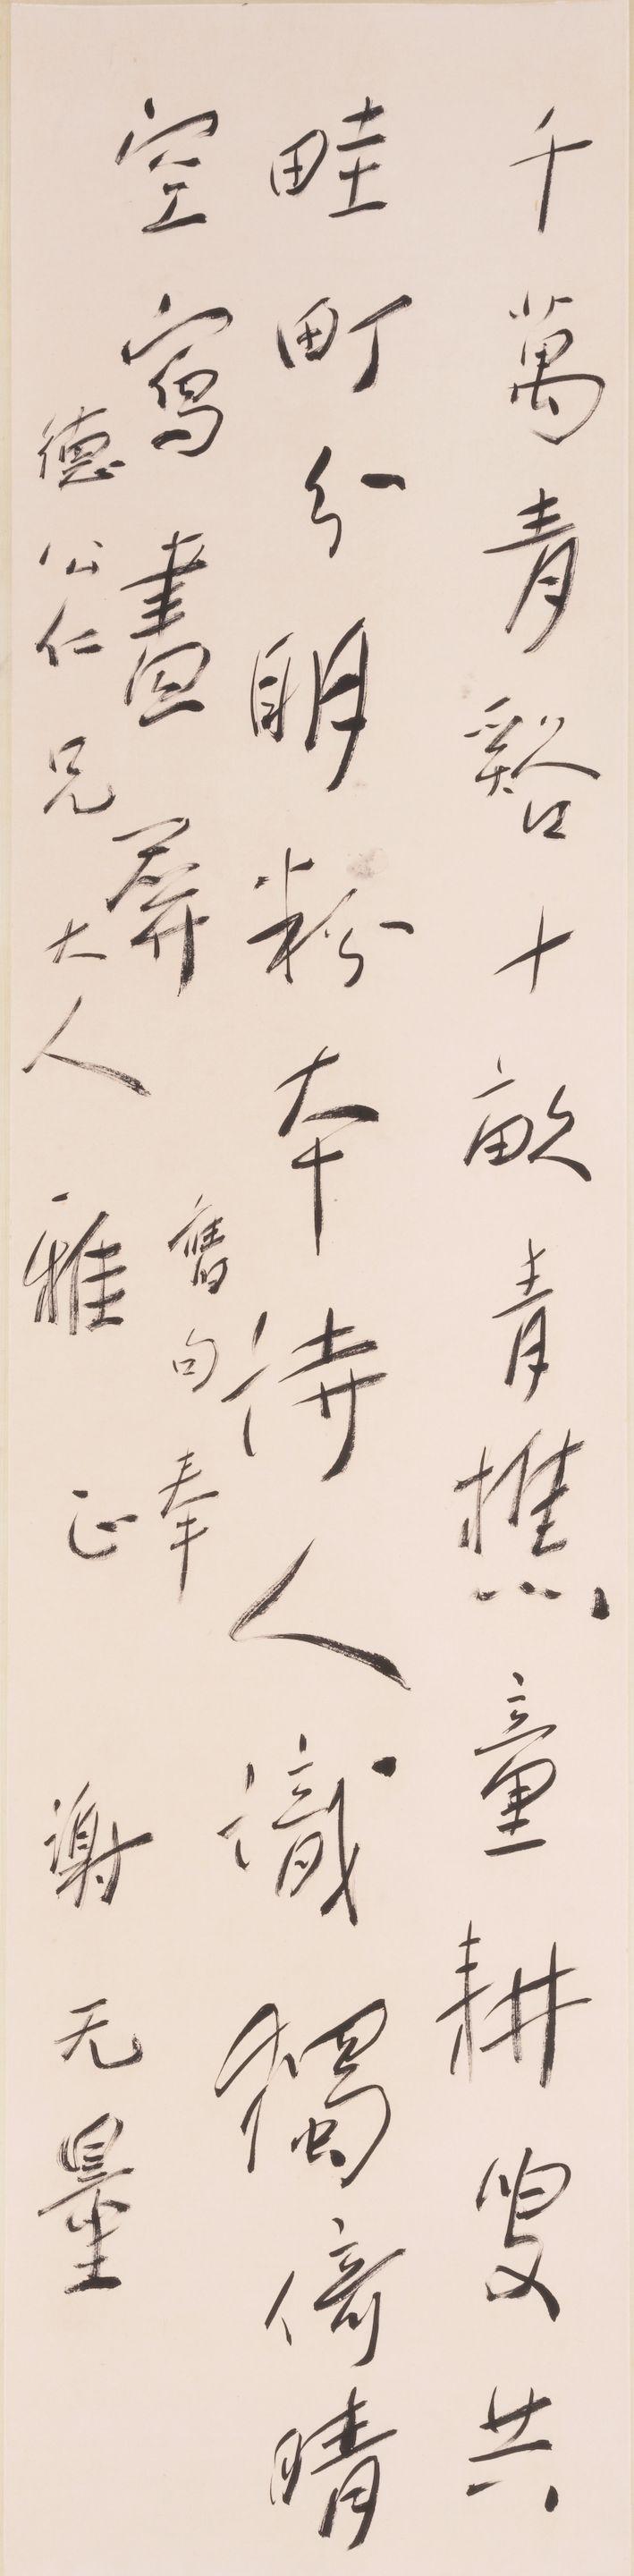 千萬青谿十畝青樵童耕叟共
畦町分明粉本詩人識獨倚晴
空寫畫屏 舊句奉
德公仁兄大人 雅正 謝无量